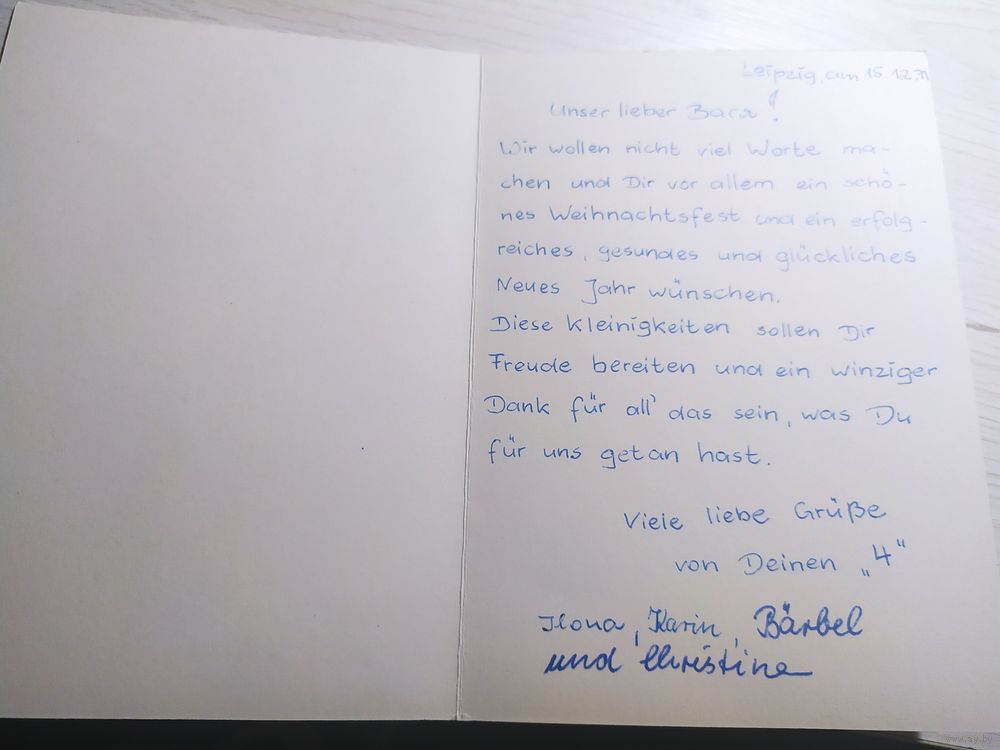 Leipzig, am 15.12.
Unser lieber Bara!
Wir wollen nicht viel Worte ma-
chen und Dir vor allem ein schö-
nes Weihnachtsfest und ein erfolg-
reiches, gesundes und glückliches
Neues Jahr wünschen.
Diese Kleinigkeiten sollen Dir
Freude bereiten und ein winziger
Dank für all' das sein, was Du
für uns getan hast.
Viele liebe Grüße
von Deinen „4“
Ilona, Karin, Bärbel
und Christine
www.ay.by